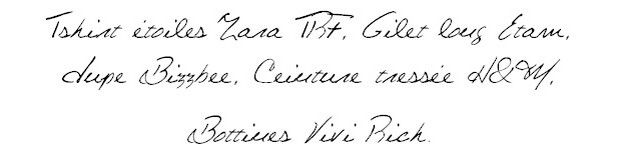 Tshirt étoiles Zara TRF, Gilet long Etam,
Jupe Bizzbee, Ceinture tressée H&M,
Bottines Vivi Rich.